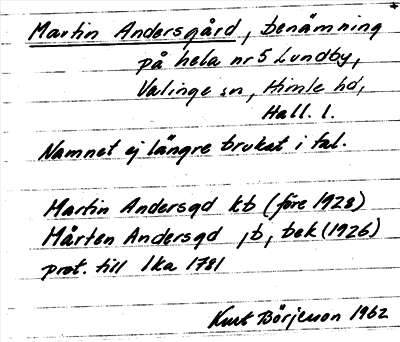 Martin Andersgård, benämning
på hela nr 5 Lundby,
Valinge sn, Himle hd,
Hall. l.
Namnet ej längre brukat i tal.
Martin Andersgd kb (före 1928)
Mårten Andersgd ,b, bek (1926)
prot. till lka 1781
Kurt Börjesson 1962